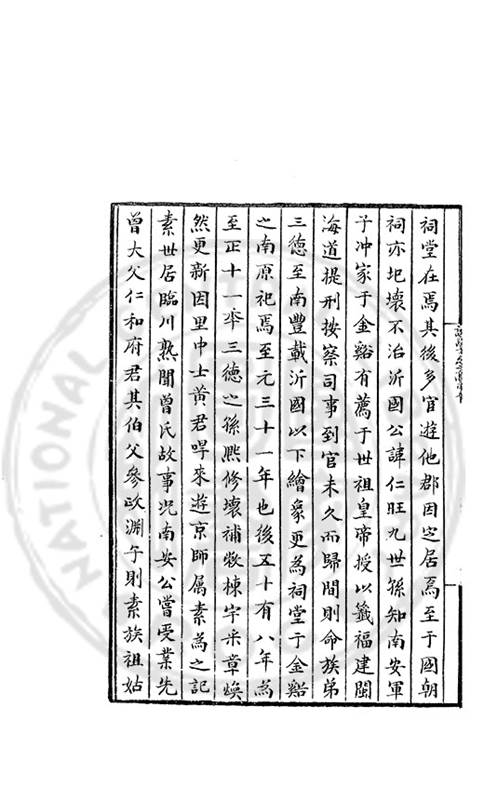 祠堂在焉其後多官遊他郡因定居焉至于國朝
祠亦圮壞不治沂國公諱仁旺九世孫知南安軍
子沖家于金谿有薦于世祖皇帝授以籖福建閩
海道提刑按察司事到官未久而歸間則命族弟
三德至南豐載沂國以下繪象更為祠堂于金谿
之南原祀焉至元三十一年也後五十有八年為
至正十一年三德之孫熈修壞補敝棟宇采章煥
然更新因里中士黃君㫸來遊京師属素為之記
素世居臨川熟聞曾氏故事况南安公嘗受業先
曾大父仁和府君其伯父參政淵子則素族祖姑
NATIONAL